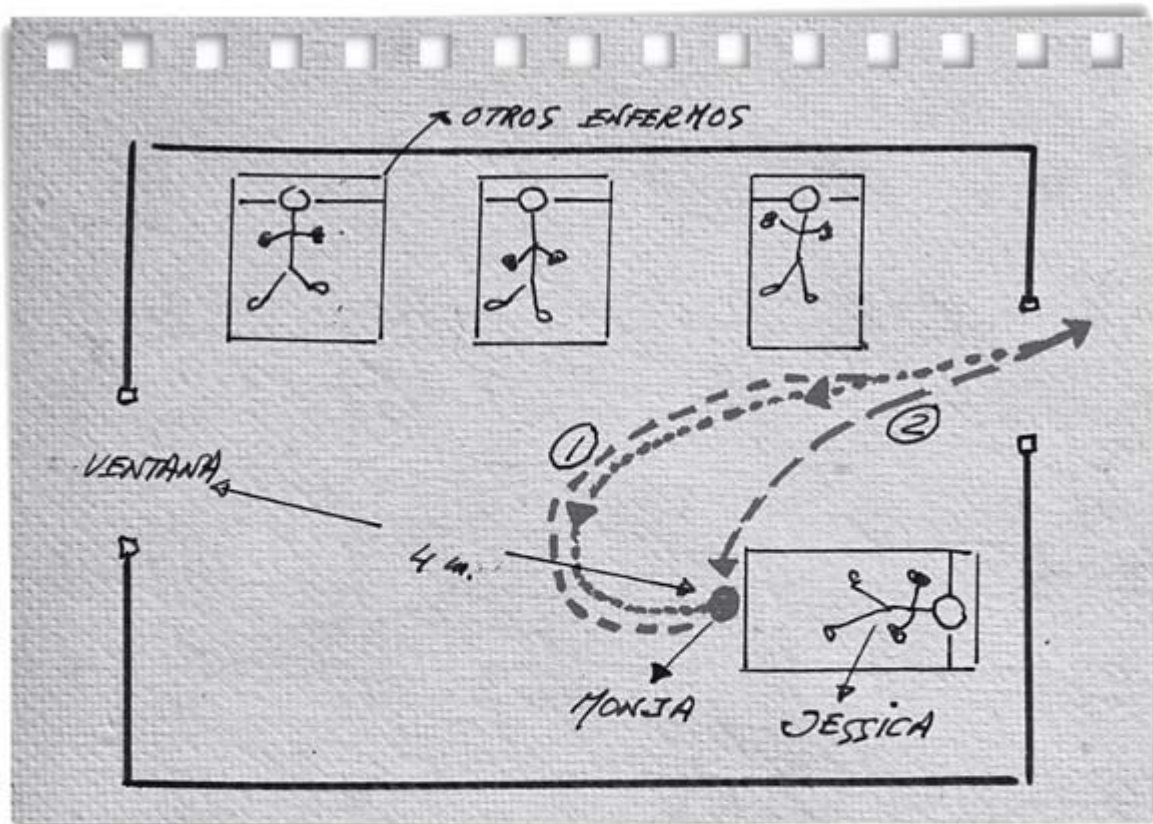 OTROS ENFERMOS
①
②
VENTANA
4 m.
MONJA
JESSICA